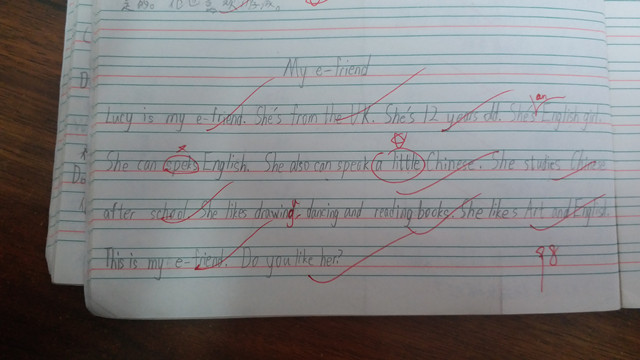 My e-friend
Lucy is my e-friend. She's from the UK. She's 12 years old. She's an English girl.
She can speks English. She also can speak a little Chinese. She studies Chinese
after school. She likes drawing, dancing and reading books. She likes Art and English.
This is my e-friend. Do you like her?
98